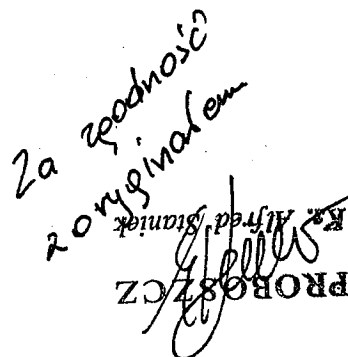 Za zgodność
z oryginałem
PROBOSZCZ
Ks. Alfred Staniek